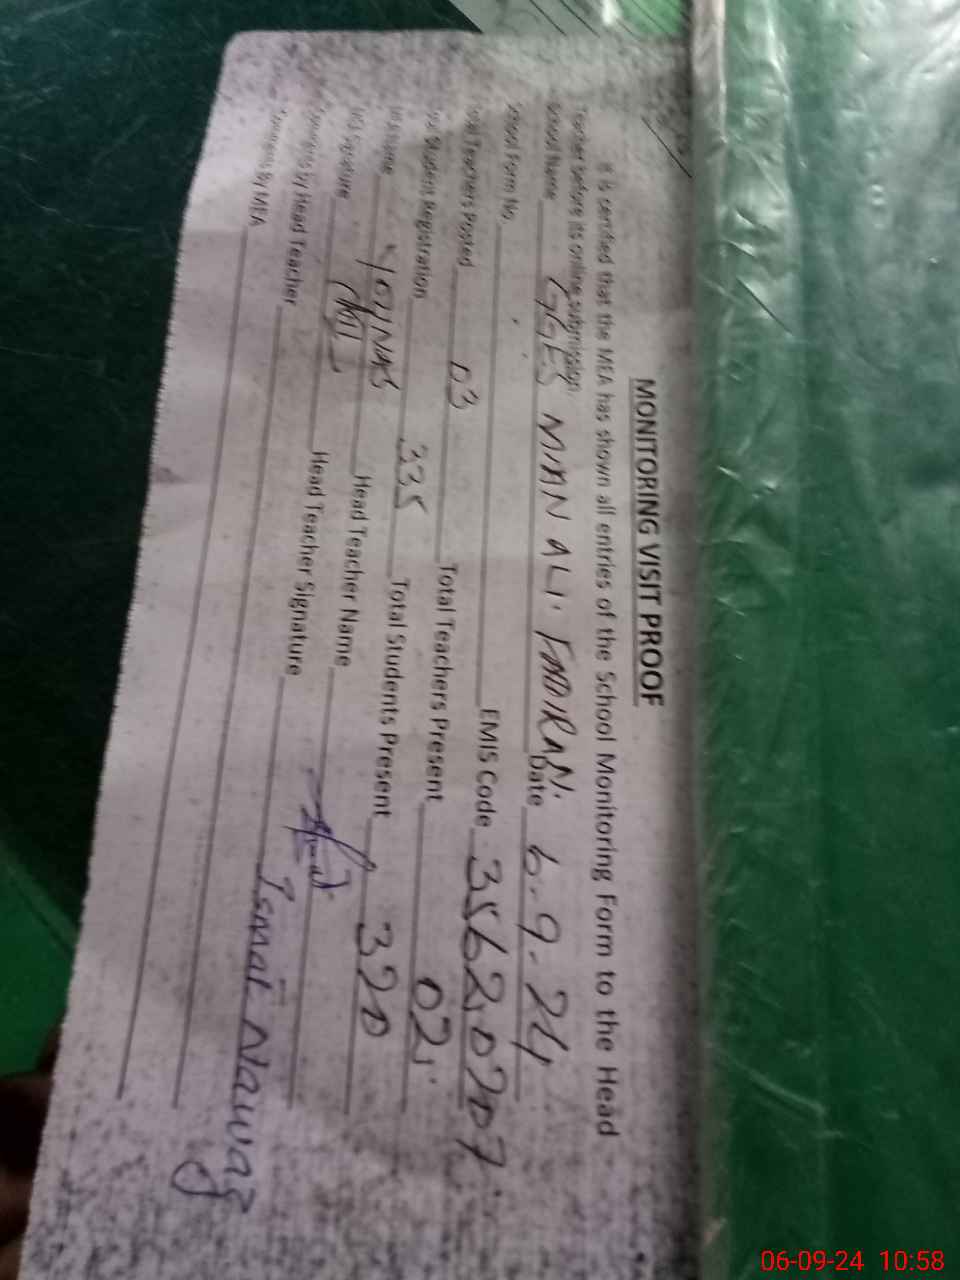 MONITORING VISIT PROOF
It is certified that the MEA has shown all entries of the School Monitoring Form to the Head
Teacher before its online submission.
School Name GGES MIAN ALI. Date 6-9-24
School Form No. EMIS Code 35620207
Total Teachers Posted 03 Total Teachers Present 02
Total Student Registration 335 Total Students Present 320
MEA Name YOUNAS Head Teacher Name
MEA Signature Head Teacher Signature Ismat Nawaz
Comments by Head Teacher
Comments by MEA
06-09-24 10:58